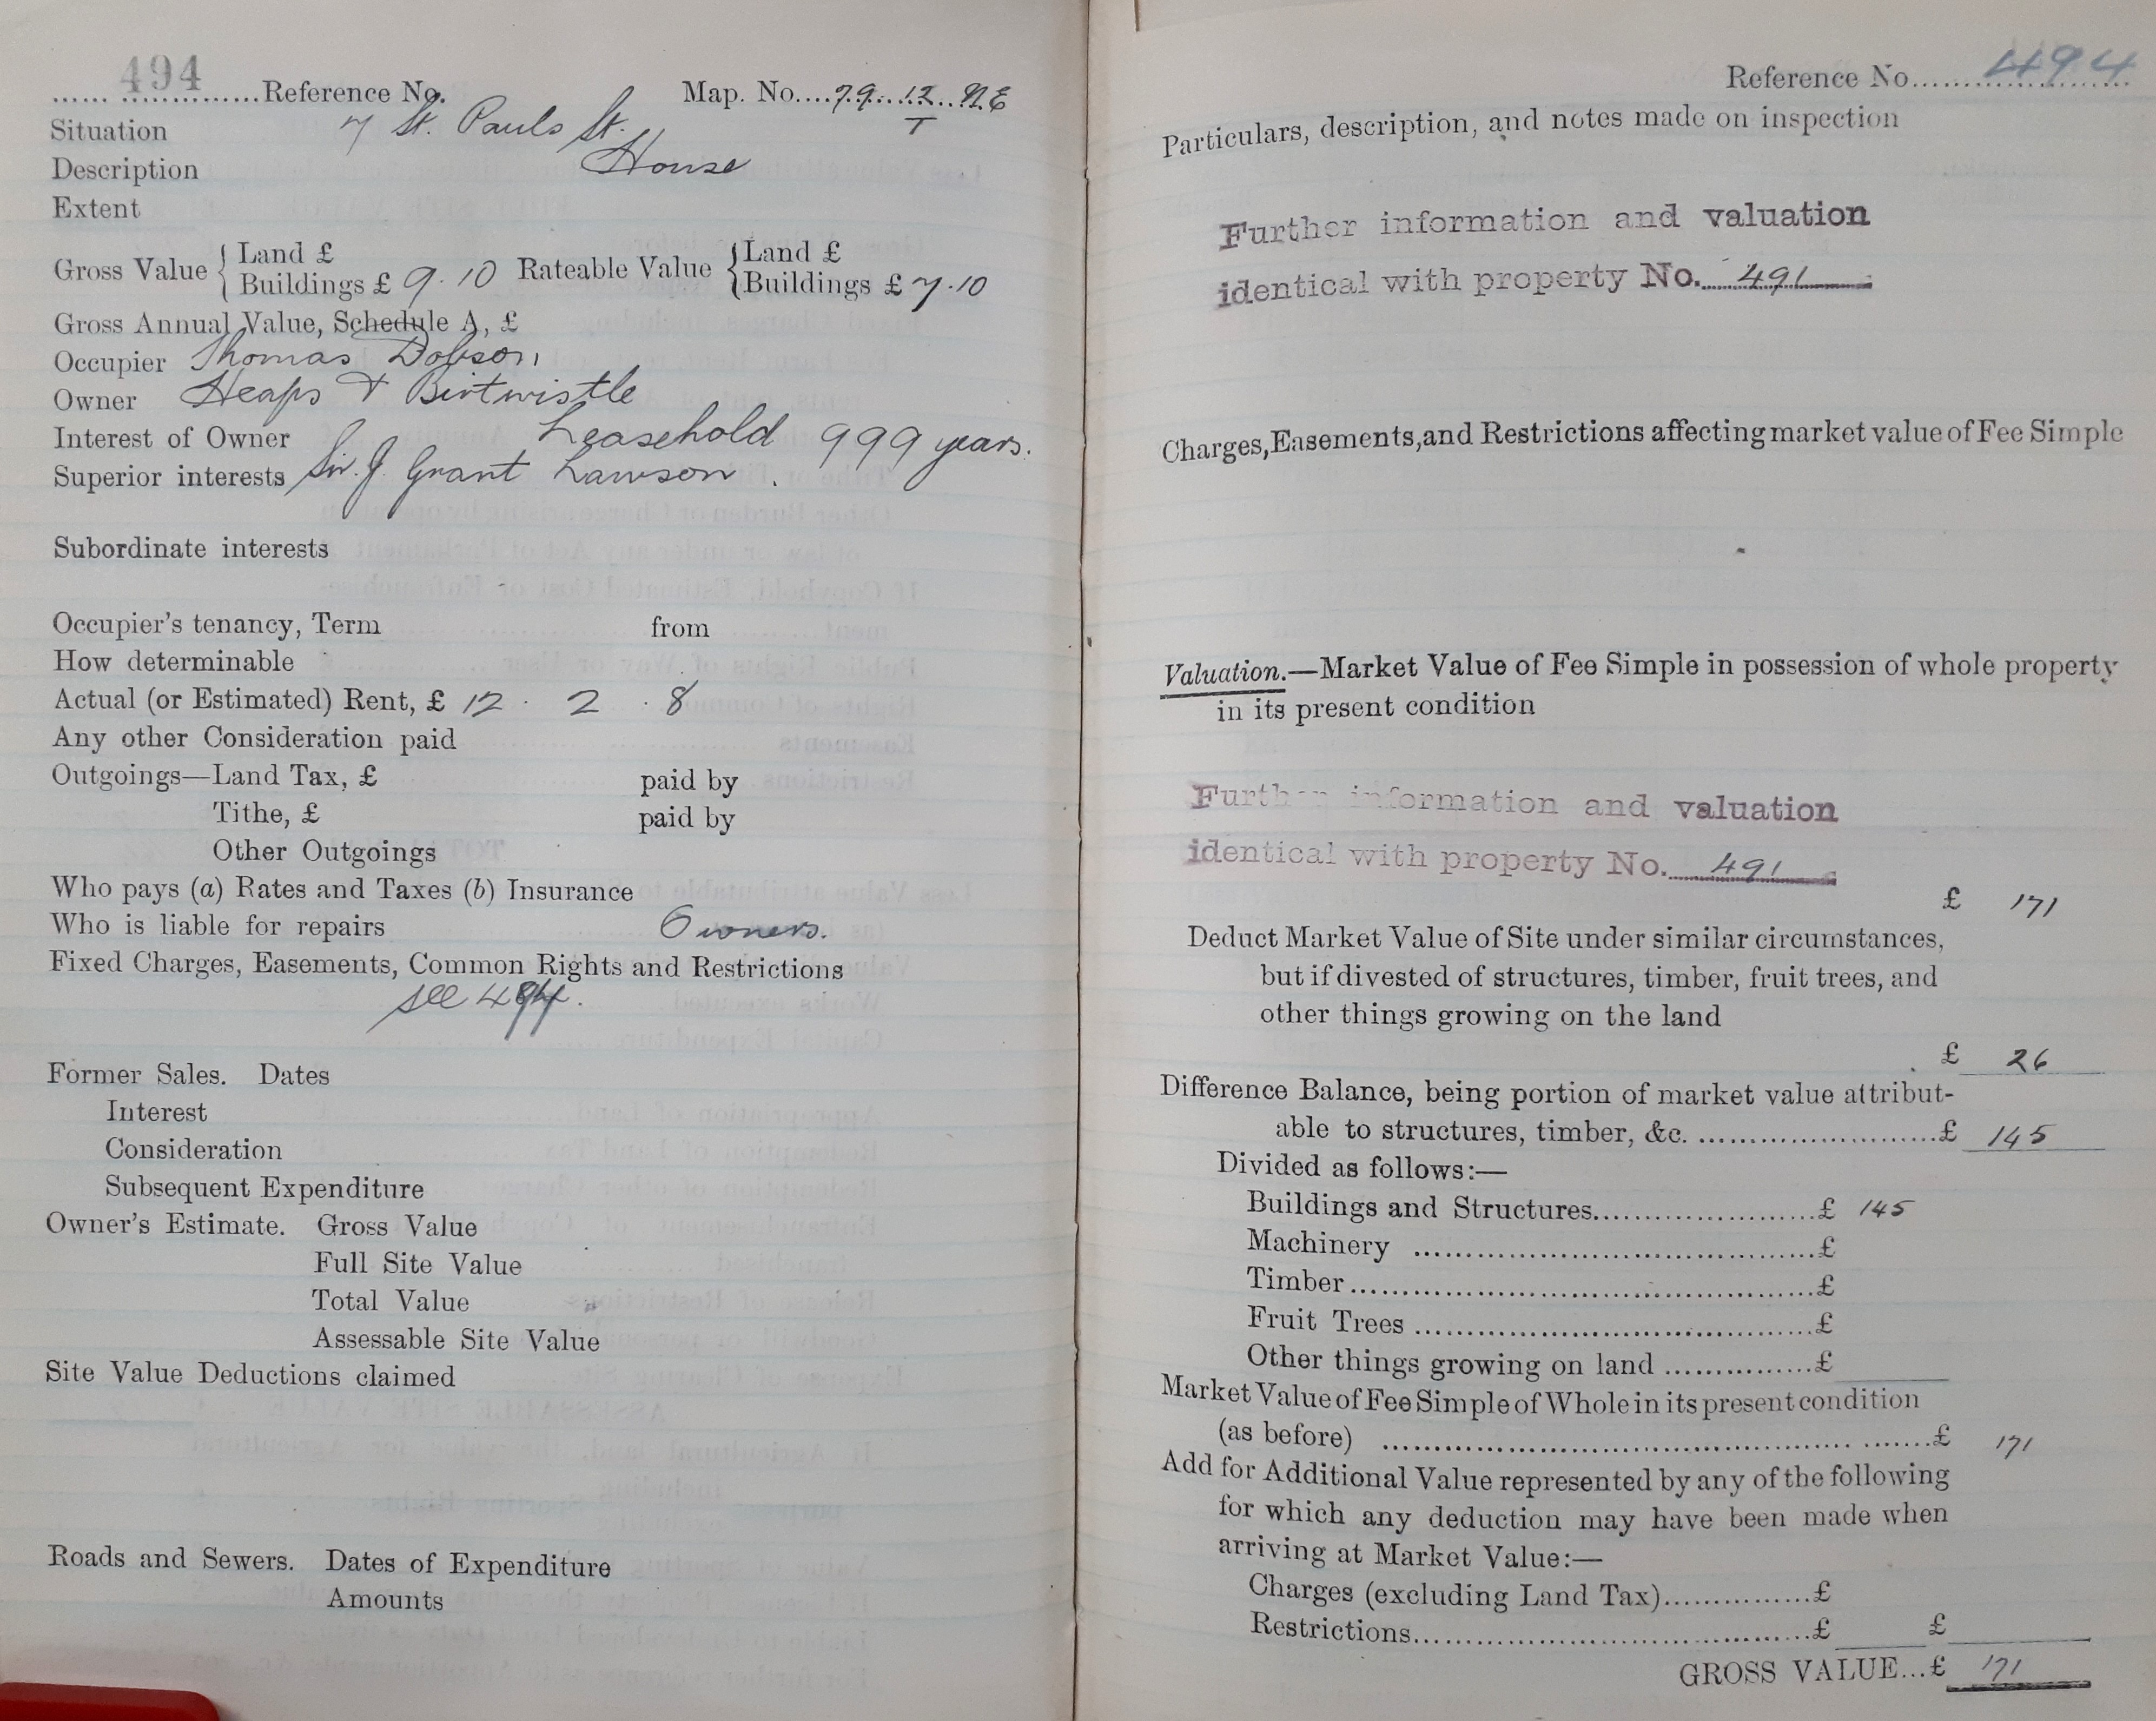 494 Reference No. Map. No. 79. 12. N.E
T
Situation 7 St. Pauls St.
Description House
Extent
Gross Value { Land £
Buildings £ 9.10 Rateable Value { Land £
Buildings £ 7.10
Gross Annual Value, Schedule A, £
Occupier Thomas Dobson
Owner Heaps & Birtwistle
Interest of Owner Leasehold 999 years.
Superior interests Sir. J. Grant Lawson.
Subordinate interests
Occupier's tenancy, Term from
How determinable
Actual (or Estimated) Rent, £ 12. 2. 8
Any other Consideration paid
Outgoings—Land Tax, £ paid by
Tithe, £ paid by
Other Outgoings
Who pays (a) Rates and Taxes (b) Insurance
Who is liable for repairs Owners.
Fixed Charges, Easements, Common Rights and Restrictions
see
Former Sales. Dates
Interest
Consideration
Subsequent Expenditure
Owner's Estimate. Gross Value
Full Site Value
Total Value
Assessable Site Value
Site Value Deductions claimed
Roads and Sewers. Dates of Expenditure
Amounts
Reference No. 494
Particulars, description, and notes made on inspection
Further information and valuation
identical with property No. 491
Charges, Easements, and Restrictions affecting market value of Fee Simple
Valuation.—Market Value of Fee Simple in possession of whole property
in its present condition
Further information and valuation
identical with property No. 491
£ 171
Deduct Market Value of Site under similar circumstances,
but if divested of structures, timber, fruit trees, and
other things growing on the land
£ 26
Difference Balance, being portion of market value attribut-
able to structures, timber, &c. £ 145
Divided as follows:—
Buildings and Structures £ 145
Machinery £
Timber £
Fruit Trees £
Other things growing on land £
Market Value of Fee Simple of Whole in its present condition
(as before) £ 171
Add for Additional Value represented by any of the following
for which any deduction may have been made when
arriving at Market Value:—
Charges (excluding Land Tax) £
Restrictions £ £
GROSS VALUE... £ 171